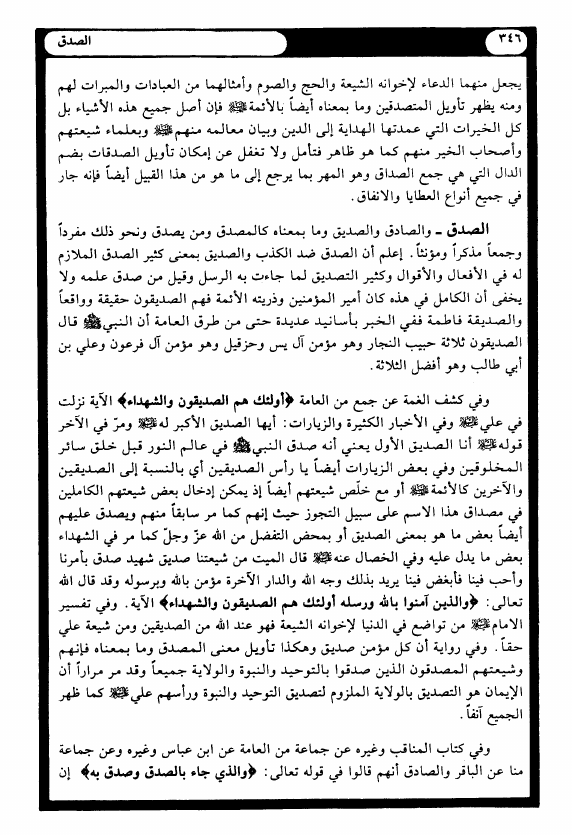 ٣٤٦
الصدق
يجعل منهما الدعاء لإخوانه الشيعة والحج والصوم وأمثالهما من العبادات والمبرات لهم
ومنه يظهر تأويل المتصدقين وما بمعناه أيضاً بالأئمة ﷺ فإن أصل جميع هذه الأشياء بل
كل الخيرات التي عمدتها الهداية إلى الدين وبيان معالمه منهم ﷺ وبعلماء شيعتهم
وأصحاب الخير منهم كما هو ظاهر فتأمل ولا تغفل عن إمكان تأويل الصدقات بضم
الدال التي هي جمع الصداق وهو المهر بما يرجع إلى ما هو من هذا القبيل أيضاً فإنه جار
في جميع أنواع العطايا والانفاق.
الصدق ـ والصادق والصديق وما بمعناه كالمصدق ومن يصدق ونحو ذلك مفرداً
وجمعاً مذكراً ومؤنثاً. إعلم أن الصدق ضد الكذب والصديق بمعنى كثير الصدق الملازم
له في الأفعال والأقوال وكثير التصديق لما جاءت به الرسل وقيل من صدق علمه ولا
يخفى أن الكامل في هذه كان أمير المؤمنين وذريته الأئمة فهم الصديقون حقيقة وواقعاً
والصديقة فاطمة ففي الخبر بأسانيد عديدة حتى من طرق العامة أن النبي ﷺ قال
الصديقون ثلاثة حبيب النجار وهو مؤمن آل يس وحزقيل وهو مؤمن آل فرعون وعلي بن
أبي طالب وهو أفضل الثلاثة.
وفي كشف الغمة عن جمع من العامة ﴿أولئك هم الصديقون والشهداء﴾ الآية نزلت
في علي ﷺ وفي الأخبار الكثيرة والزيارات: أيها الصديق الأكبر له ﷺ ومرّ في الآخر
قوله ﷺ أنا الصديق الأول يعني أنه صدق النبي ﷺ في عالم النور قبل خلق سائر
المخلوقين وفي بعض الزيارات أيضاً يا رأس الصديقين أي بالنسبة إلى الصديقين
والآخرين كالأئمة ﷺ أو مع خلّص شيعتهم أيضاً إذ يمكن إدخال بعض شيعتهم الكاملين
في مصداق هذا الاسم على سبيل التجوز حيث إنهم كما مر سابقاً منهم ويصدق عليهم
أيضاً بعض ما هو بمعنى الصديق أو بمحض التفضل من الله عزّ وجلّ كما مر في الشهداء
بعض ما يدل عليه وفي الخصال عنه ﷺ قال الميت من شيعتنا صديق شهيد صدق بأمرنا
وأحب فينا فأبغض فينا يريد بذلك وجه الله والدار الآخرة مؤمن بالله وبرسوله وقد قال الله
تعالى: ﴿والذين آمنوا بالله ورسله أولئك هم الصديقون والشهداء﴾ الآية. وفي تفسير
الامام ﷺ من تواضع في الدنيا لإخوانه الشيعة فهو عند الله من الصديقين ومن شيعة علي
حقاً. وفي رواية أن كل مؤمن صديق وهكذا تأويل معنى المصدق وما بمعناه فإنهم
وشيعتهم المصدقون الذين صدقوا بالتوحيد والنبوة والولاية جميعاً وقد مر مراراً أن
الإيمان هو التصديق بالولاية الملزوم لتصديق التوحيد والنبوة ورأسهم علي ﷺ كما ظهر
الجميع آنفاً.
وفي كتاب المناقب وغيره عن جماعة من العامة عن ابن عباس وغيره وعن جماعة
منا عن الباقر والصادق أنهم قالوا في قوله تعالى: ﴿والذي جاء بالصدق وصدق به﴾ إن